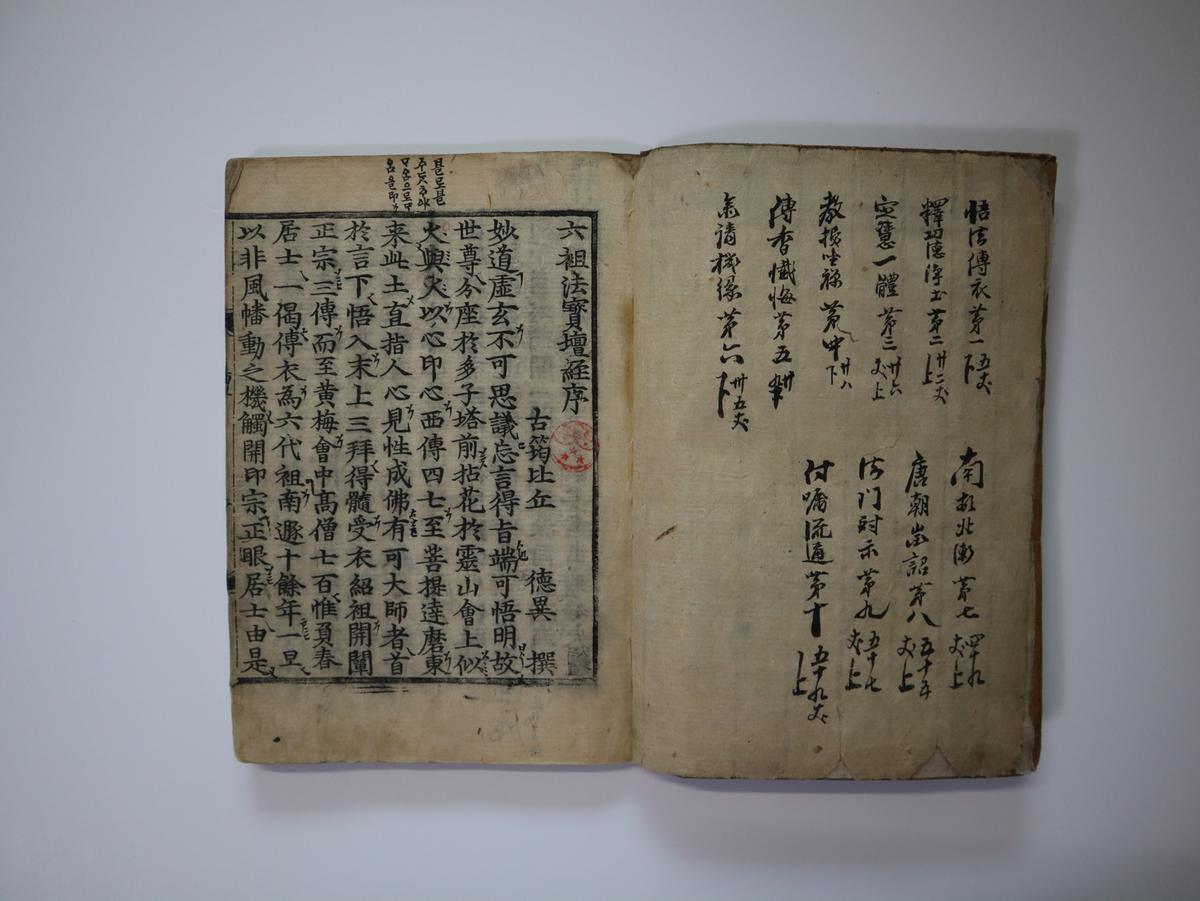 悟法傳衣 第一 五丈 下
釋功德淨土 第二 廿二丈 上
定慧一體 第三 廿六丈上
教授坐禪 第四 廿八 下
傳香懺悔 第五 卅
叅請機緣 第六 卅五丈 下
南頓北漸 第七 四十九丈 上
唐朝徵詔 第八 五十五丈 上
法門對示 第九 五十七丈 上
付囑流通 第十 五十九丈 上
六祖法寶壇經序
古筠比丘 德異 撰
妙道虛玄不可思議忘言得旨端可悟明故
世尊分座於多子塔前拈花於靈山會上似
火與火以心印心西傳四七至菩提達磨東
来此土直指人心見性成佛有可大師者首
於言下悟入末上三拜得髓受衣紹祖開闡
正宗三傳而至黃梅會中高僧七百惟負春
居士一偈傳衣為六代祖南遯十餘年一旦
以非風幡動之機觸開印宗正眼居士由是